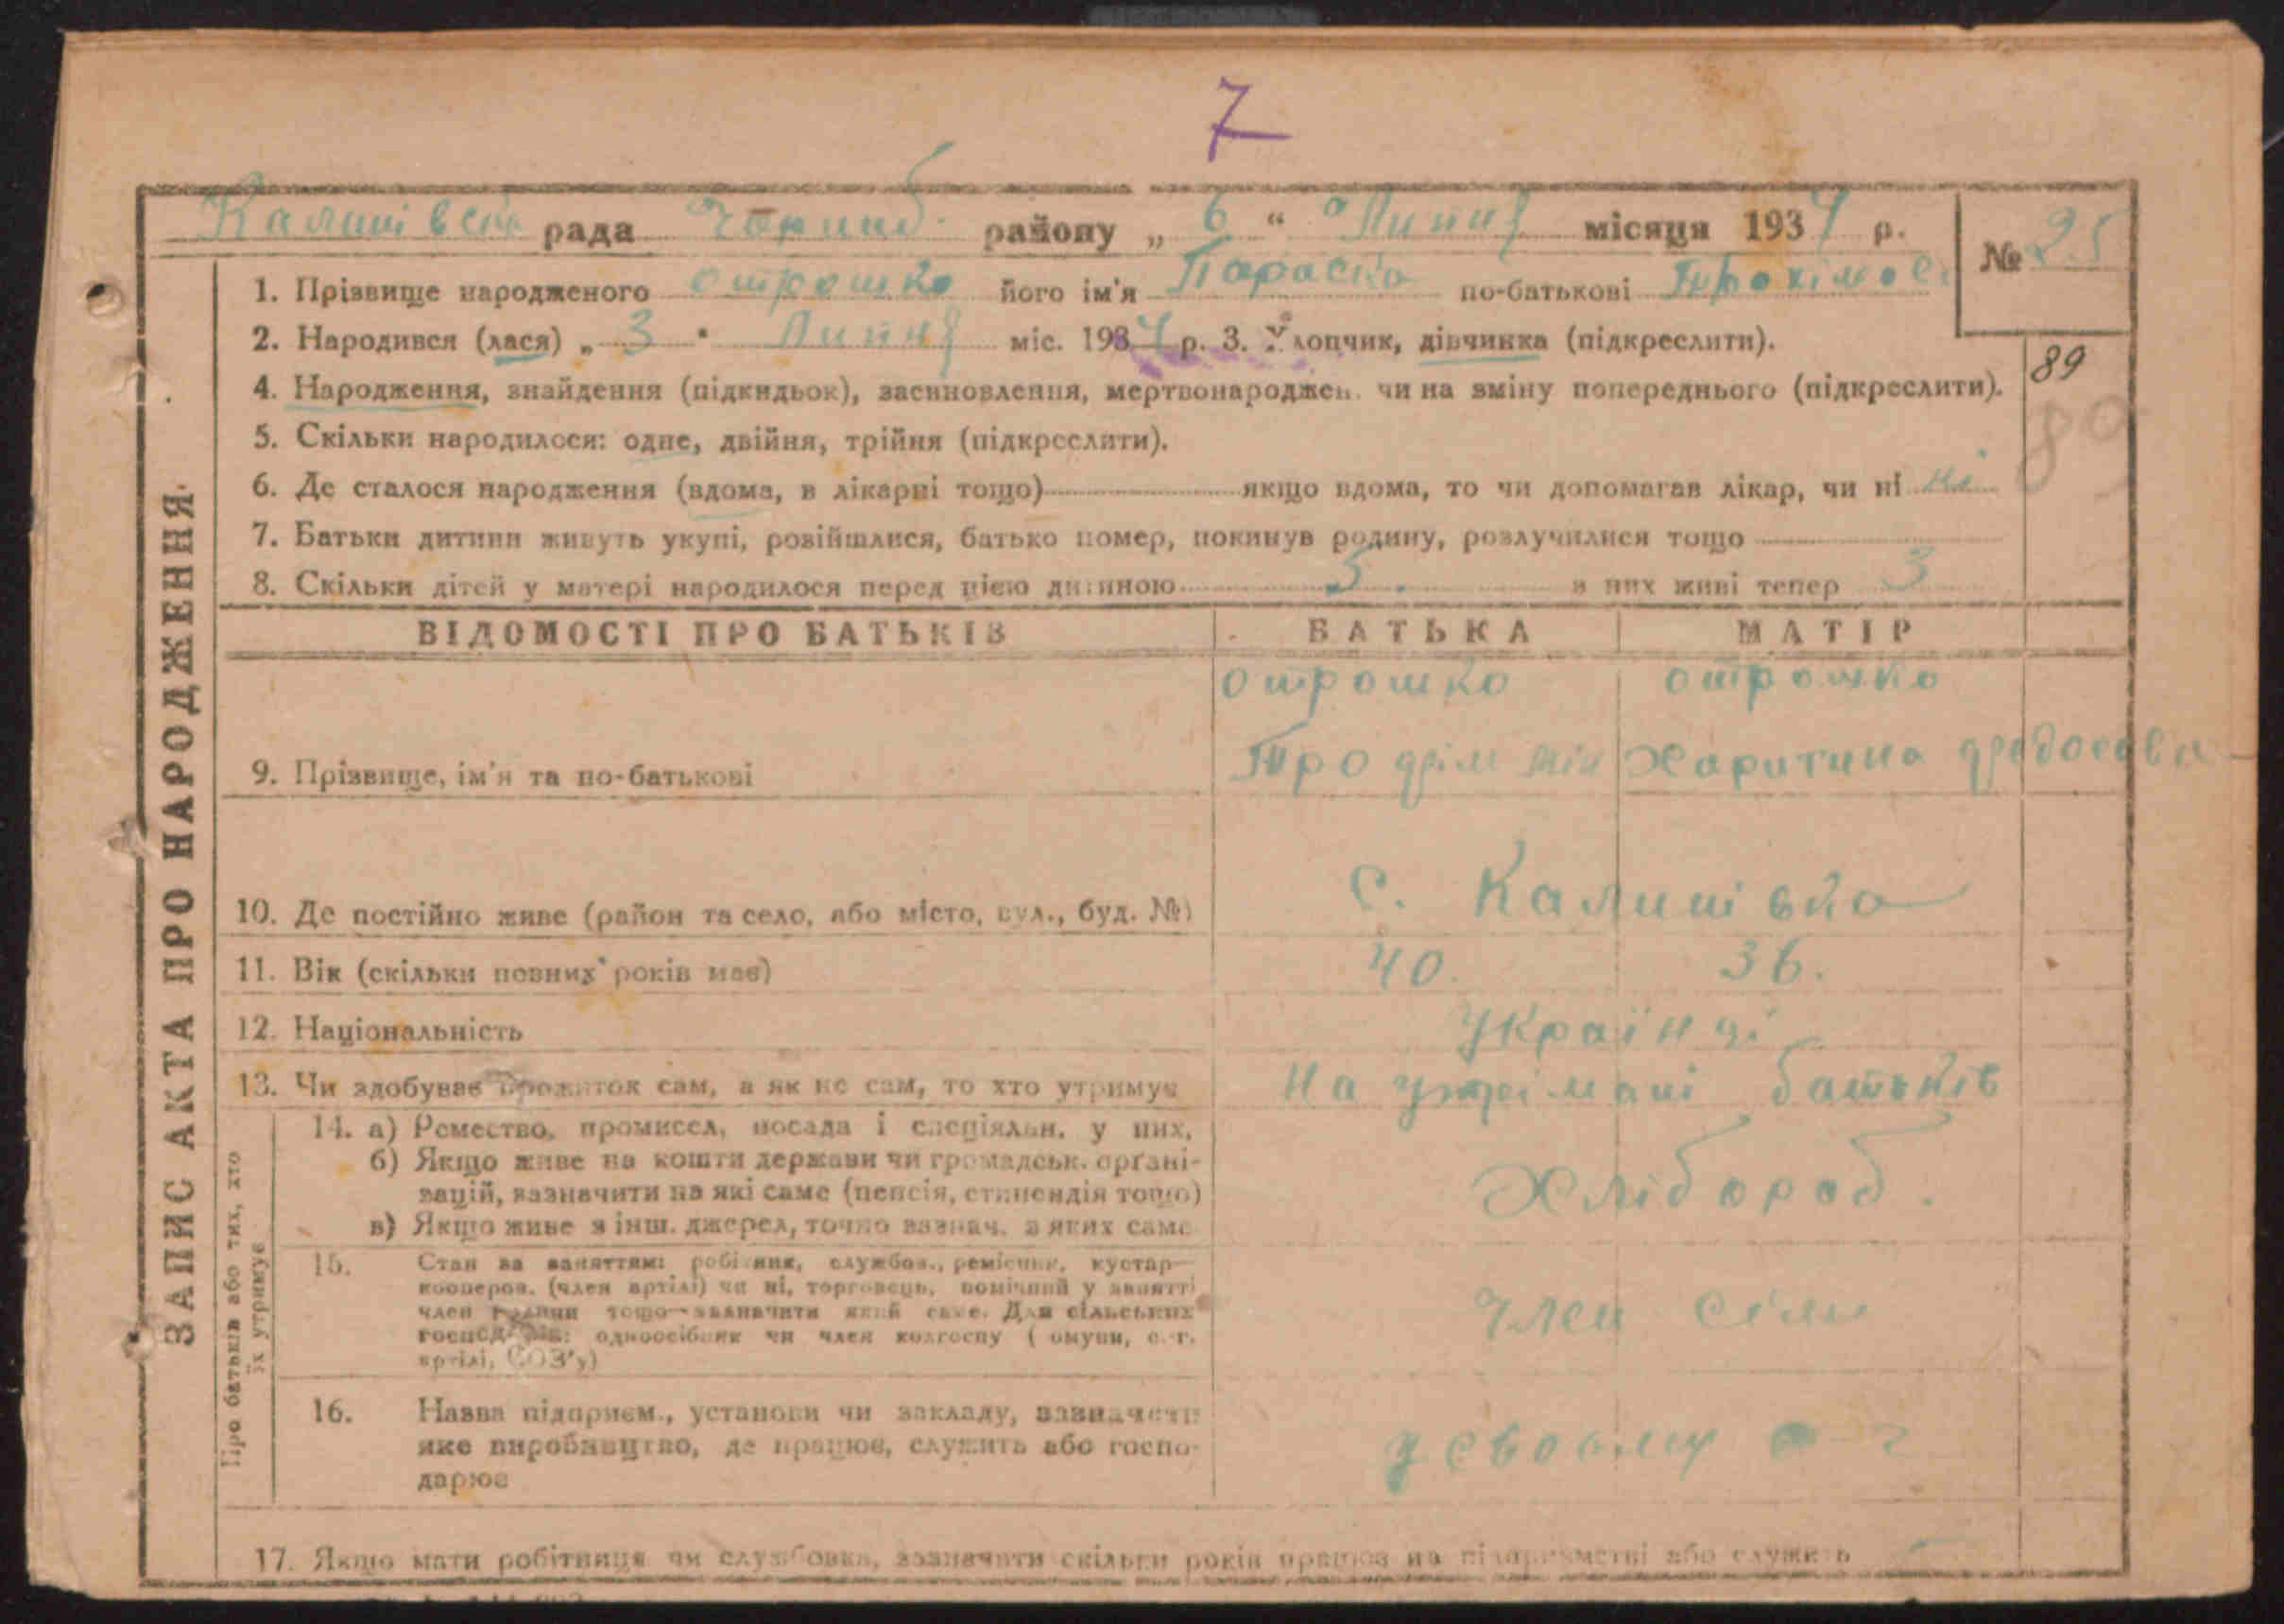 7
Калинівська рада Чорноб. району „ 6 “ Липня місяця 1934 р.
№ 25
1. Прізвище народженого Отрошко його ім'я Параска по-батькові Трохімов.
2. Народився (лася) „ 3 " Липня міс. 1934 р. 3. Хлопчик, дівчинка (підкреслити).
89
4. Народження, знайдення (підкидьок), засиновлення, мертвонароджен. чи на зміну попереднього (підкреслити).
89
5. Скільки народилося: одне, двійня, трійня (підкреслити).
6. Де сталося народження (вдома, в лікарні тощо) якщо вдома, то чи допомагав лікар, чи ні ні
7. Батьки дитини живуть укупі, розійшлися, батько помер, покинув родину, розлучилися тощо
8. Скільки дітей у матері народилося перед цією дитиною 5. з них живі тепер 3
ЗАПИС АКТА ПРО НАРОДЖЕННЯ.
ВІДОМОСТІ ПРО БАТЬКІВ БАТЬКА МАТІР
Отрошко Отрошко
9. Прізвище, ім'я та по-батькові Трофім Харитина Федосова
10. Де постійно живе (район та село, або місто, вул., буд. №) с. Калинівка
11. Вік (скільки повних років має) 40. 36.
12. Національність Українці
13. Чи здобуває прожиток сам, а як не сам, то хто утримує На утрімані батьків
Про батьків або тих, хто
їх утримує
14. а) Ремество, промисел, посада і спеціяльн. у них,
б) Якщо живе на кошти держави чи громадськ. органі-
зацій, зазначити на які саме (пенсія, стипендія тощо) Хлібороб.
в) Якщо живе з інш. джерел, точно зазнач. з яких саме
15. Стан за заняттям: робітник, службов., ремісник, кустар—
кооперов. (член артілі) чи ні, торговець, помічний у занятті
член родини тощо—зазначити який саме. Для сільських
господарів: одноосібник чи член колгоспу ( омуни, с.-г.
артілі, СОЗ'у)
Член сім
16. Назва підприєм., установи чи закладу, зазначити
яке виробництво, де працює, служить або госпо-
дарює
у своєму
17. Якщо мати робітниця чи службовка, зазначити скільки років працює на підприємстві або служить